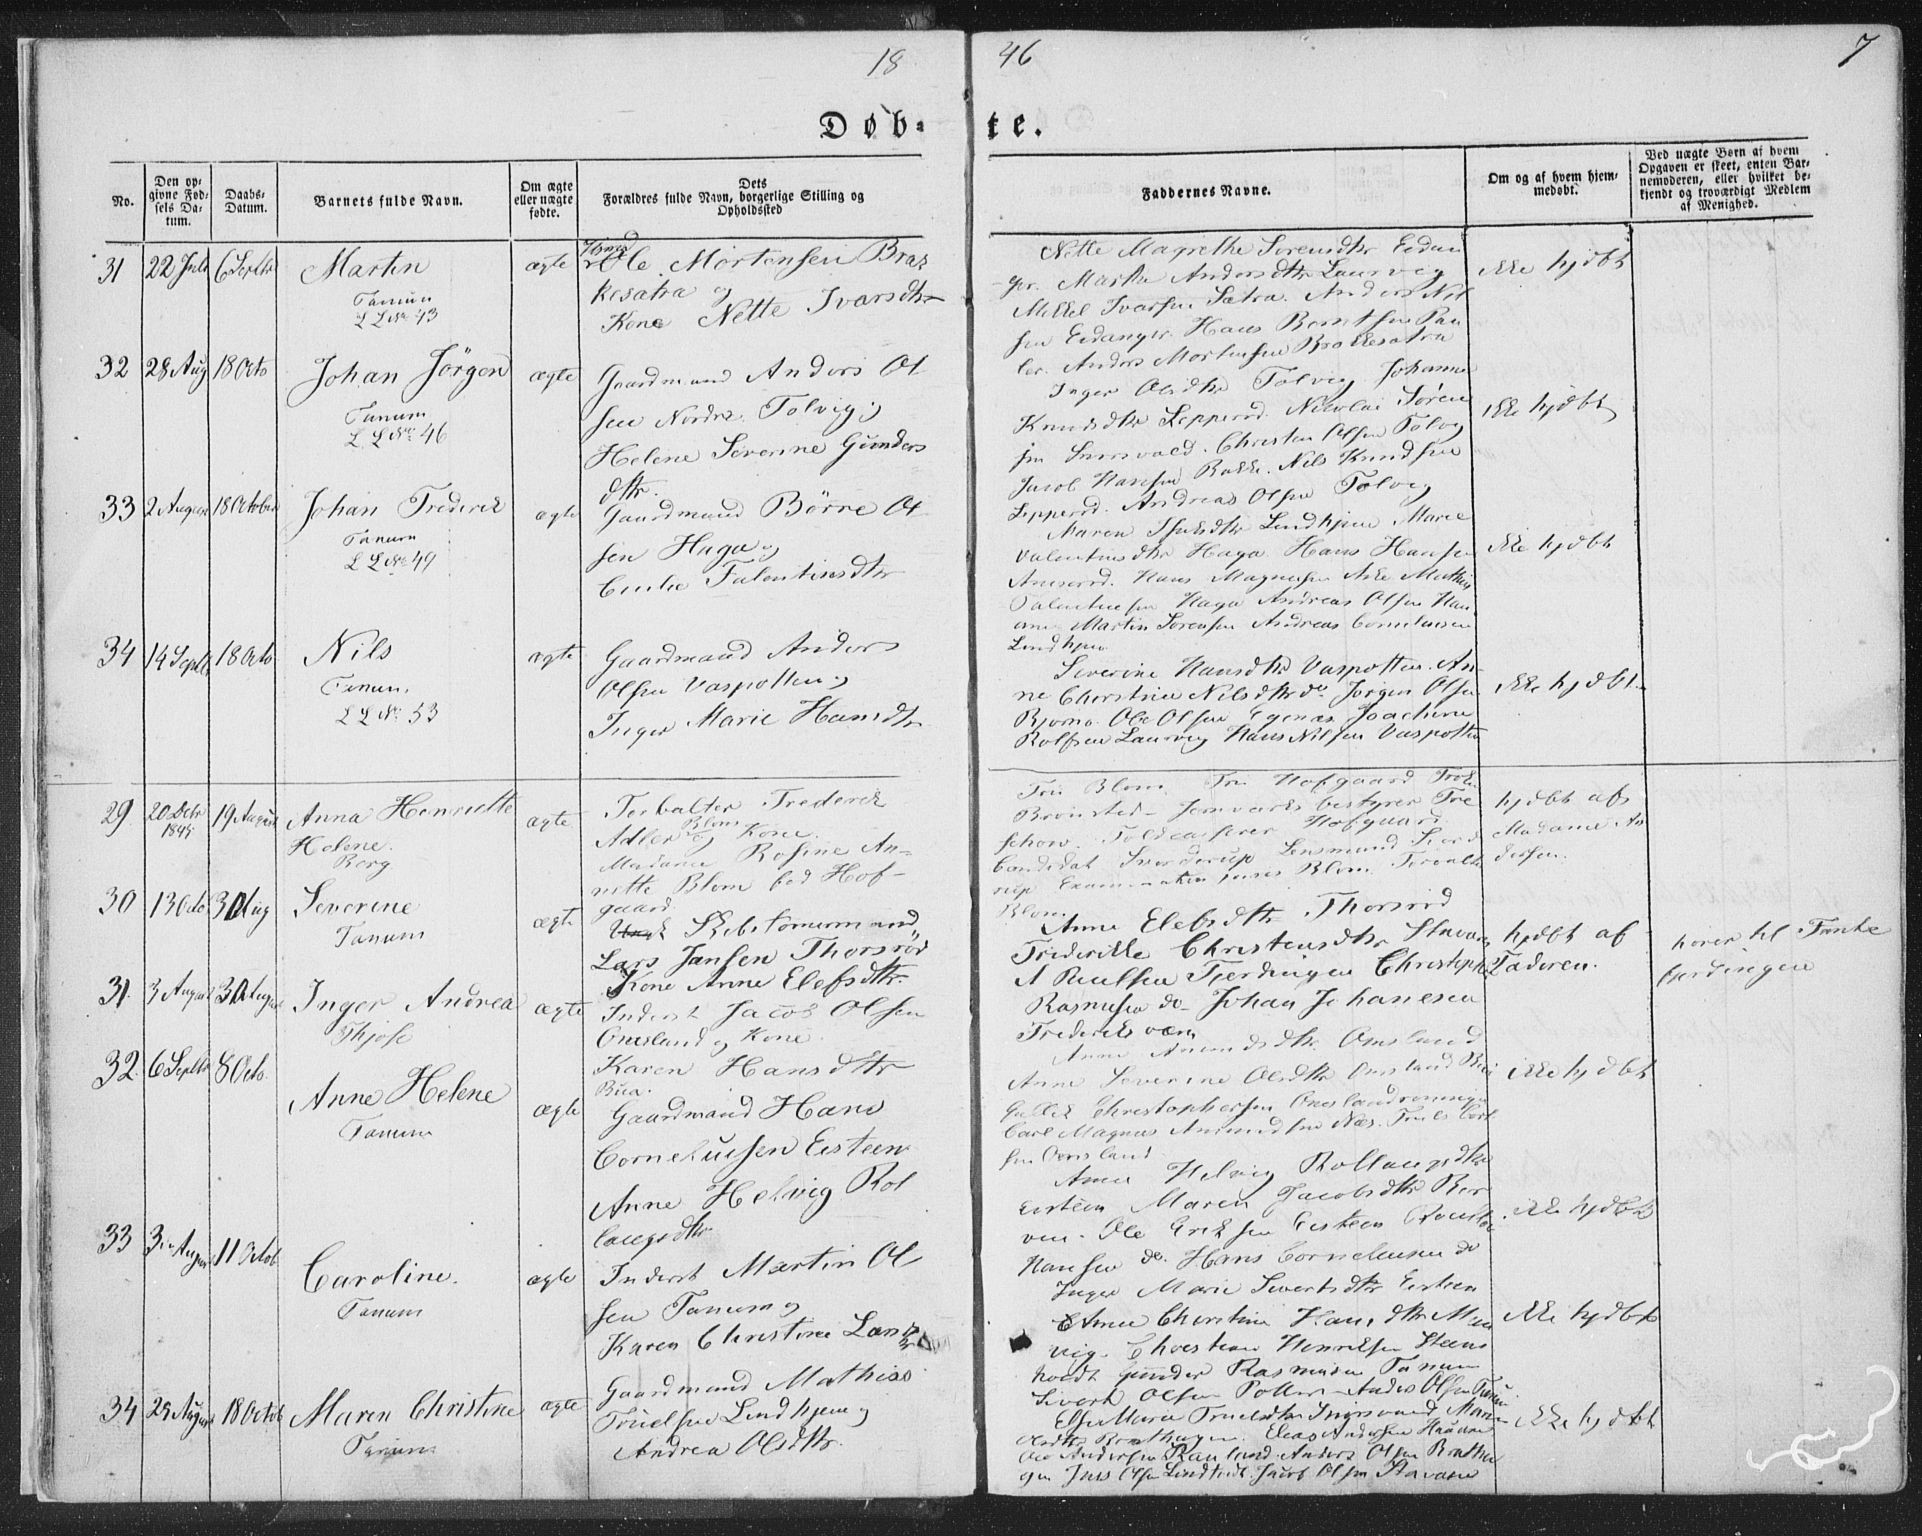 18
46
7
Døb-
te.
No.
Den op-
givne Fød-
sels Da-
tum.
Daabs-
Datum.
Barnets fulde Navn.
Om ægte
eller uægte
fødte.
Dets
Forældres fulde Navn, borgerlige Stilling og
Opholdssted
Faddernes Navne.
Om og af hvem hjem-
medøbt.
Ved uægte Børn af hvem
Opgaven er skeet, enten Bar-
nemoderen, eller hvilket be-
kjendt og troværdigt Medlem
af Menighed.
31 22 Juli 6 Septbr Martin ægte Ole Mortensen Brak
kesatra og
Kone Nette Ivarsdtr
Tanum
L L No 43
Nette Magrethe Sorensdtr Eidan
ger. Marthe Andersdtr Laurvig
Mekkel Ivarsen Satra. Anders Nil
sen Eidanger. Hans Berntsen Pau
ler. Anders Mortensen Brakkesatra
ikke hjdbt
32 28 Aug 18 Octo Johan Jörgen ægte Gaardmand Anders Ol
sen Nordre Tolvig og
Helene Severine Gunders
dtr.
Tanum
L L No 46
Inger Olsdtr Tolvig Johanne
Knudsdtr Lepperod. Nicolai Sören
sen. Christen Olsen Tolvig
Jacob Hansen Bakke. Nils Knudsen
Lepperod. Andreas Olsen Tolvig
ikke hjdbt
33 2 August 18 October Johan Frederik ægte Gaardmand Börre Ol
sen Haga og
Falentinsdtr
Tanum
L L No 49
Maren Lindhjem Marie
Valentinsdtr Haga Hans Hansen
Hans Magnusen Mathis
Valentinsen Haga Andreas Olsen
Martin Sorensen Andreas Cornelausen
Lindhjem
ikke hjdbt
34 14 Septb 18 Octo Nils ægte Gaardmand Anders
Olsen Vaspotten og
Inger Marie Hansdtr
Tanum.
L L No 53
Severine Hansdtr Vaspotten. An-
ne Christine Nilsdtr do Jörgen Olsen
Ole Olsen Joachim
Rolfsen Laurvig Hans Nilsen Vaspotten
ikke hjdbt
29 20 Debr
1845 19 August Anna Henriette
Helene.
Berg
ægte Forvalter Frederik
Adler Blom og Kone
Madame Rosine An-
nette Blom fød Hof-
gaard.
Fru Blom. Fru Hofgaard Frøk
Bronsted - Jernværks bestyrer Tre
schow. Toldcasserer Hofgaard.
Candidat Lensmand
Examinatus juris Blom. Forvalter
Blom.
hjdbt af
Madame An
dersen.
30 13 Octo 30 Aug Severine
Tanum
ægte Skibstömermand
Lars Jansen Thorsröd
Kone Anne Elefsdtr.
Anne Elefsdtr Thorsröd
Frederikke Christensdtr Stavarn
Paulsen Fjerdingen Christopher
Rasmusen do Johan Johanesen
Frederiksværn
hjdbt af
Faderen.
hörer til Tanke
fjerdingen
31. 3 August 30 August Inger Andrea
Thjose
ægte Inderst Jacob Olsen
Omsland og Kone
Karen Hansdtr
Bua.
Anne Amundsdtr Omsland
Anne Severine Olsdtr Omsland
Gullik Christophersen Omslandroningen
Carl Magnus Amundsen Næs. Truls Carl
sen Omsland
ikke hjdbt
32. 6 Septbr 8 Octo. Anne Helene
Tanum
ægte Gaardmand Hans
Corneliusen Eisteen
Anne Helvig Rol
laugsdtr
Anne Helvig Rollaugsdtr
Eisteen Maren Jacobsdtr Ber
ven. Ole Eriksen Eisteen
Hansen do. Hans Corneliusen do
Inger Marie Sivertsdtr Eisteen
ikke hjdbt
33 3 August 11 Octob Caroline.
Tanum
ægte Inderst Martin Ol
sen Tanum og
Karen Christine
Anne Christine Hansdtr
vig. Christian Henriksen Steens
holdt Gunder Rasmusen Tanum
Sivert Olsen Anders Olsen Tanum
ikke hjdbt
34 25 August 18 Octob Maren Christine
Tanum
ægte Gaardmand Mathias
Truelsen Lindhjem og
Andrea Olsdtr.
Else Maria Truelsdtr Maren
Olsdtr Brathagen. Elias Andersen
Ole Andersen Rauland. Anders Olsen Bratha
gen Jens Olsen Jacob Olsen Stavarn
ikke hjdbt